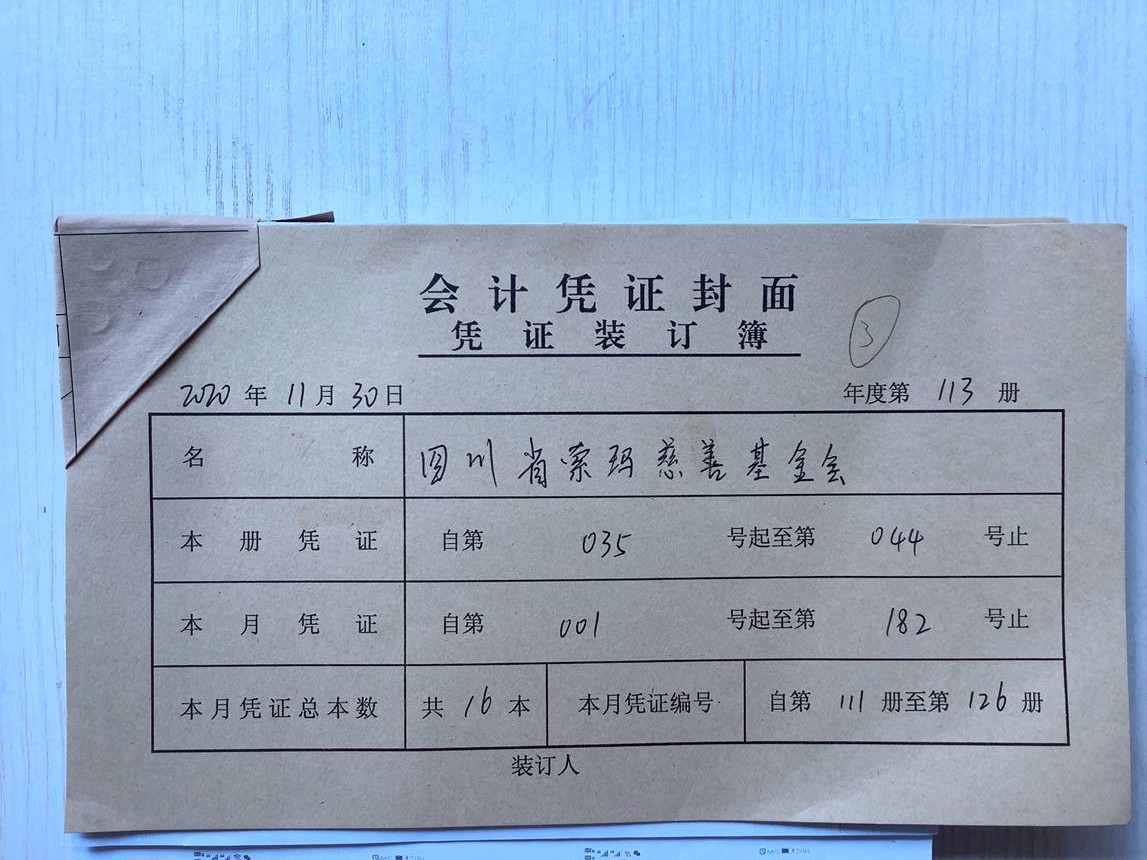 会计凭证封面
凭证装订簿
3
2020年11月30日 年度第113册
名称 四川省索玛慈善基金会
本册凭证 自第035号起至第044号止
本月凭证 自第001号起至第182号止
本月凭证总本数 共16本 本月凭证编号 自第111册至第126册
装订人